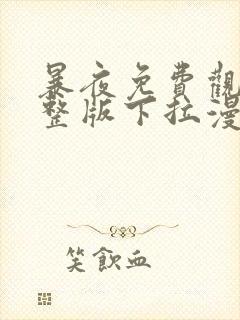 暴夜免費觀
整版下拉漫
笑飲血